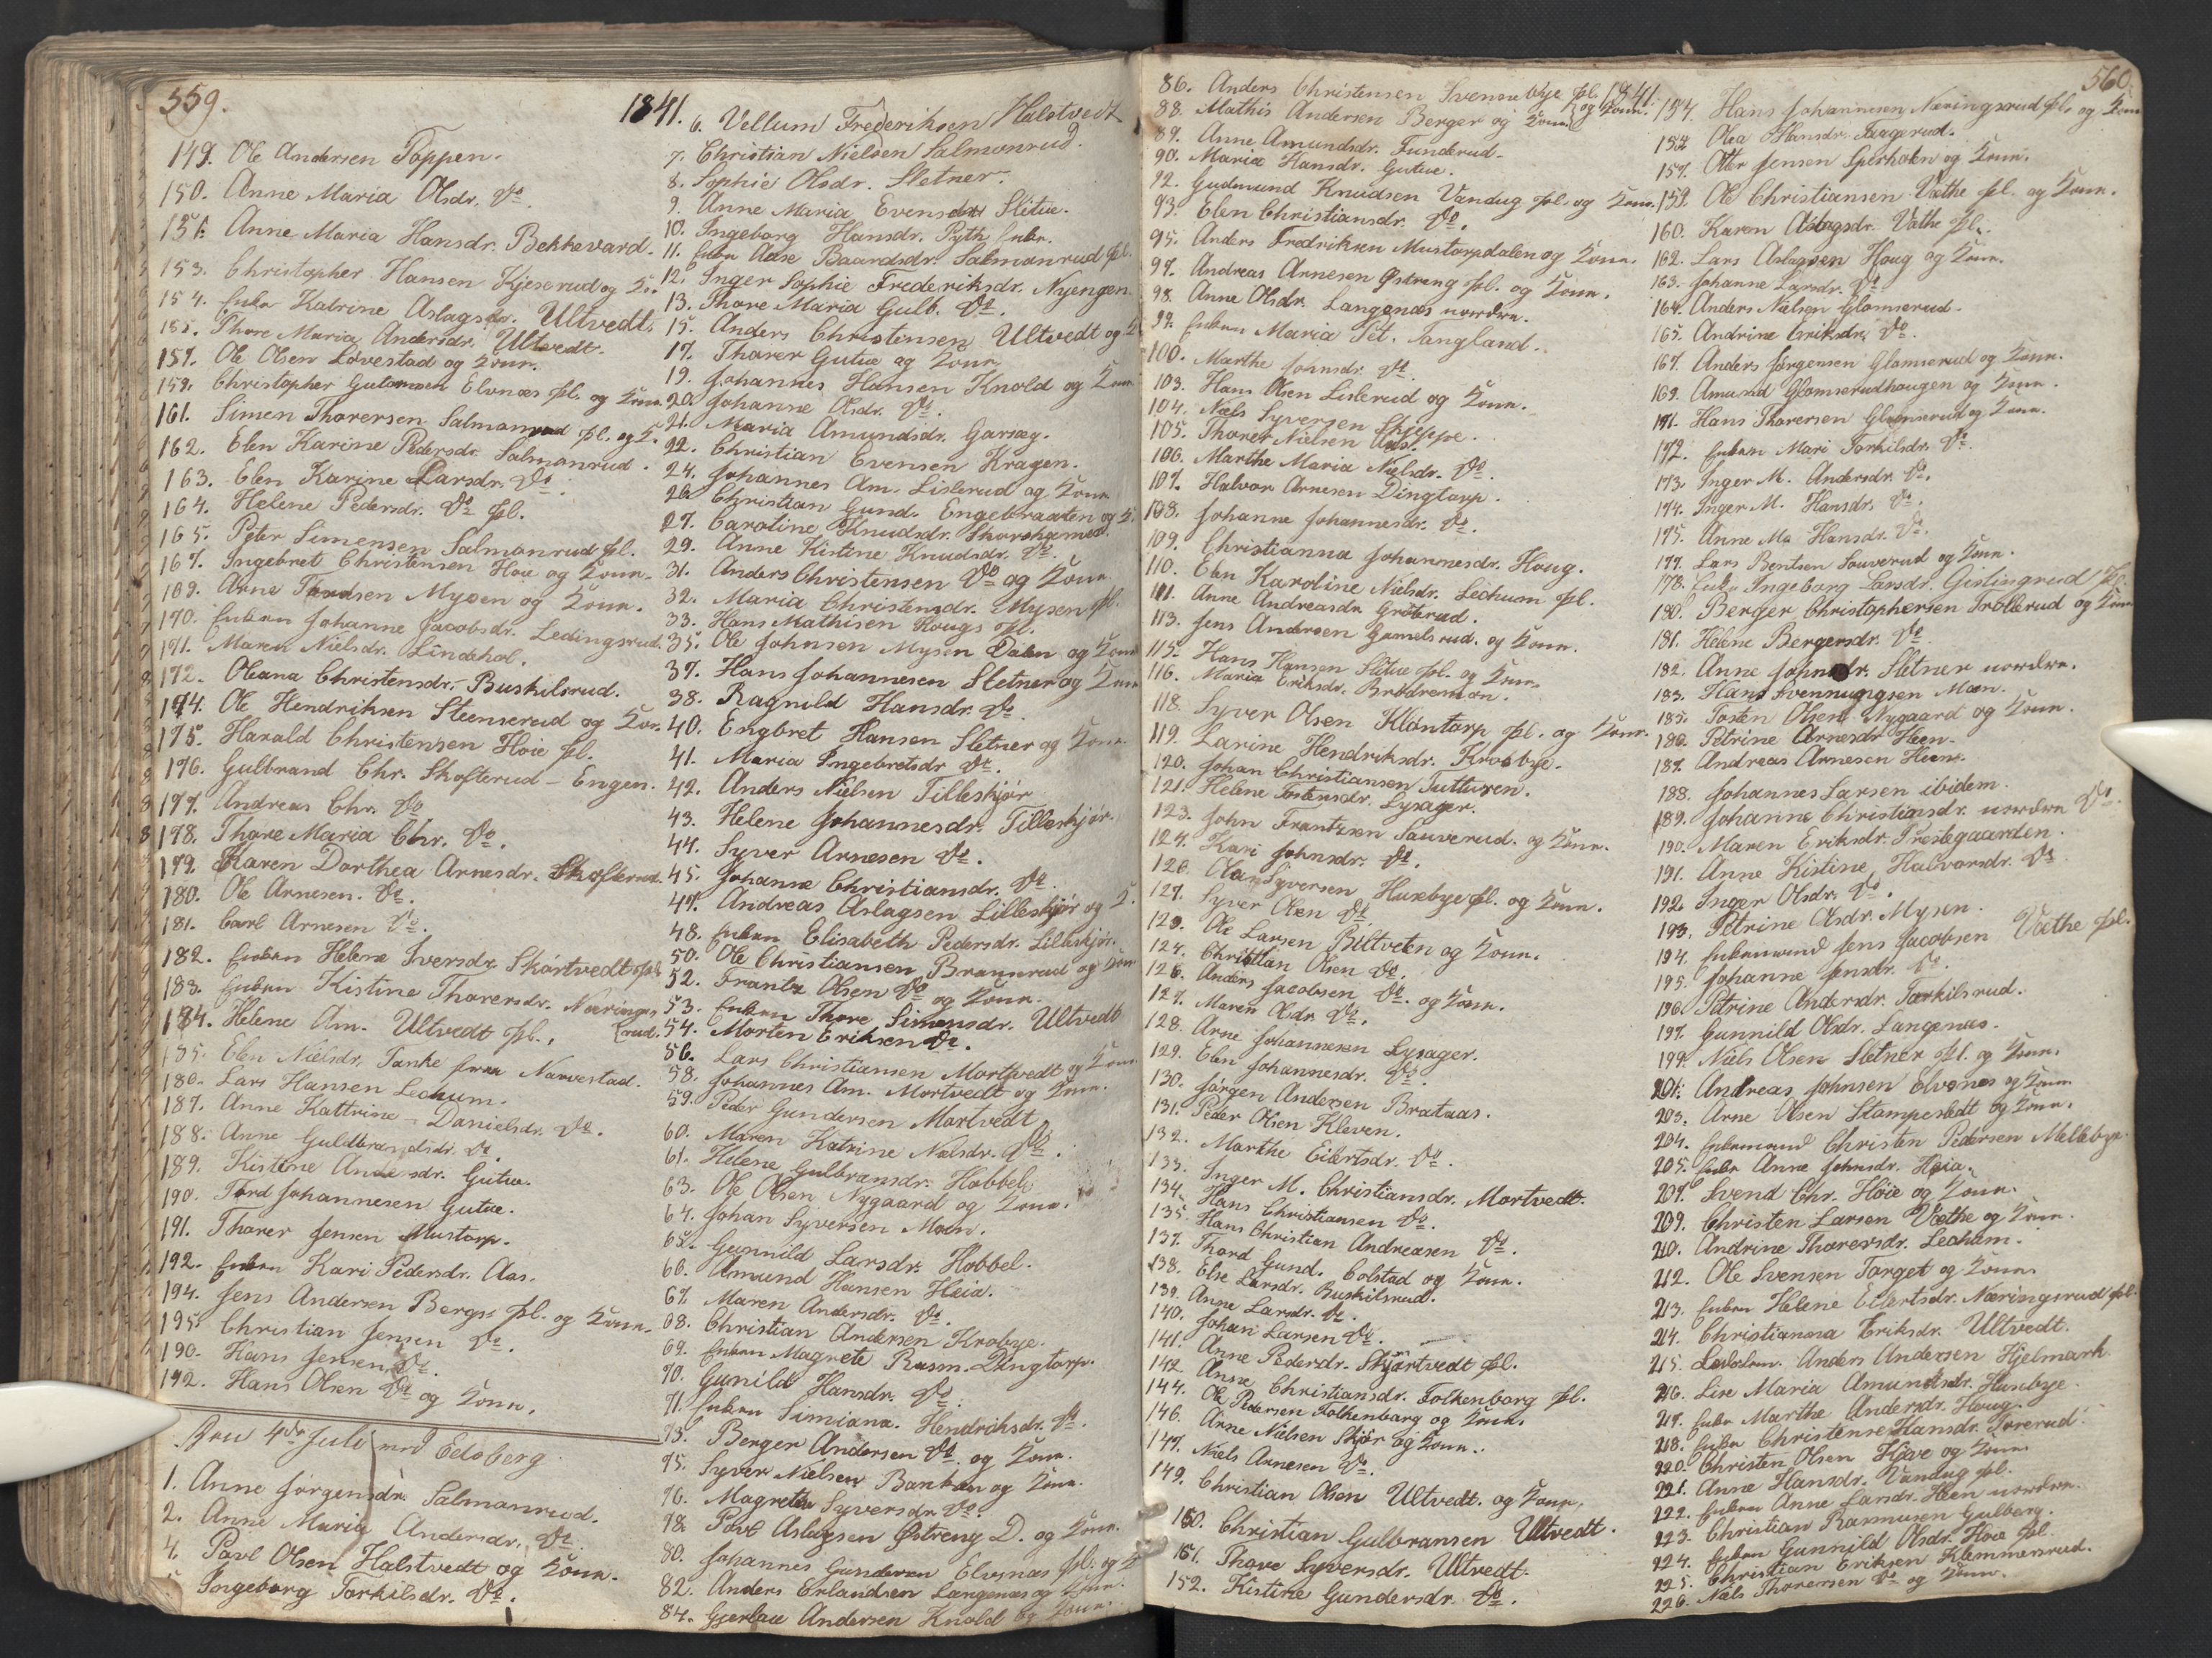 559.
1841.
149. Ole Andersen Toppen.
150. Anne Maria Olsdr. Do.
151. Anne Maria Hansdr. Bekkevard.
153. Christopher Hansen Kjeserud og K.
154. Enken Katrine Aslagsdr. Ultvedt.
155. Thore Maria Andersdr. Ultvedt.
157. Ole Olsen Løvestad og Kone.
159. Christopher Gulomsen Elvnæs pl. og Kone.
161. Simen Thorersen Salmonrud pl. og K.
162. Elen Karine Pedersdr. Salmonrud.
163. Elen Karine Larsdr. Do.
164. Helene Pedersdr. Do pl.
165. Peter Simensen Salmonrud pl.
167. Ingebret Christensen Hoie og Kone.
169. Arne Tordsen Mysen og Kone.
170. Enken Johanne Jacobsdr. Ledingsrud.
171. Maren Nielsdr. Lindehol.
172. Oleana Christensdr. Buskilsrud.
174. Ole Hendriksen Steenserud og Kone.
175. Harald Christensen Høie pl.
176. Gulbrand Chr. Skofterud - Engen.
177. Andreas Chr. Do
178. Thore Maria Chr. Do.
179. Karen Dorthea Arnesdr. Skofterud.
180. Ole Arnesen. Do.
181. Carl Arnesen Do.
182. Enken Helene Iversdr. Skørtvedt pl.
183. Enken Kistine Thorersdr. Næringsrud.
184. Helene Am. Ultvedt pl.
185. Elen Nielsdr. Tanke fra Narvestad.
186. Lars Hansen Lechum.
187. Anne Kattrine Danielsdr. Do.
188. Anne Guldbrandsdr. Do.
189. Kistine Andersdr. Gutue.
190. Tord Johannesen Gutue.
191. Thorer Jensen Mustorp.
192. Enken Kari Pedersdr. Aas.
194. Jens Andersen Bergs pl. og Kone.
195. Christian Jensen Do.
190. Hans Jensen Do.
192. Hans Olsen Do og Kone.
Den 4de Juli ved Edsberg
1. Anne Jørgensdr. Salmanrud.
2. Anne Maria Andersdr. Do.
4. Povl Olsen Halstvedt og Kone.
Ingeborg Torkilsdr. Do.
6. Vellum Frederiksen Halstvedt
7. Christian Nielsen Salmonrud.
8. Sophie Olsdr. Sletner.
9. Anne Maria Evensdr. Slitue.
10. Ingeborg Hansdr. Pyth Enke.
11. Enken Aase Baardsdr. Salmonrud pl.
12. Inger Sophie Frederiksdr. Nyengen
13. Thore Maria Gulb. Do.
15. Anders Christensen Ultvedt og K
17. Thorer Gutue og Kone
19. Johannes Hansen Knold og Kone
20. Johanne Olsdr. Do.
21. Maria Amundsdr. Garsæg.
22. Christian Evensen Kragen.
24. Johannes Am. Lislerud og Kone
26. Christian Gund. Engebraaten og K.
27. Caroline Knudsdr.
29. Anne Kistine Knudsdr. Do.
31. Anders Christensen Do og Kone
32. Maria Christensdr. Mysen pl.
33. Hans Mathisen Hougs pl.
35. Ole Johnsen Mysen Dalen og Kone
37. Hans Johannesen Sletner og Kone
38. Ragnild Hansdr. Do
40. Engbret Hansen Sletner og Kone.
41. Maria Ingebretsdr. Do.
42. Anders Nielsen Tilleskjør
43. Helene Johannesdr. Tilleskjør.
44. Syver Arnesen Do.
45. Johanne Christiansdr. Do.
47. Andreas Aslagsen Lilleskjør og K.
48. Enken Elisabeth Pedersdr. Lilleskjør.
50. Ole Christiansen Brannrud og Kone
52. Frantz Olsen Do og Kone.
53. Enken Thore Simensdr. Ultvedt
54. Morten Eriksen Do.
56. Lars Christiansen Mortvedt og Kone
58. Johannes Am. Mortvedt og Kone.
59. Peder Gundersen Mortvedt
60. Maren Katrine Nielsdr. Do.
61. Helene Gulbransdr. Hobbel.
63. Ole Olsen Nygaard og Kone.
64. Johan Syversen Moen.
65. Gunnild Larsdr. Hobbel.
66. Amund Hansen Heia.
67. Maren Andersdr. Do.
68. Christian Andersen Krobye.
69. Enken Magrete Rasm. Dingtorp.
70. Gunild Hansdr. Do.
71. Enken Simiana. Hendriksdr. Do.
73. Berger Andersen Do og Kone.
75. Syver Nielsen Banken og Kone.
76. Magrete Syversdr. Do.
78. Povl Aslagsen Østreng D. og Kone.
80. Johannes Gundersen Elvsnæs pl. og K
82. Anders Erlandsen Langenæs og Kone.
84. Gjerlau Andersen Knold og Kone.
560.
1841.
86. Anders Christensen Svennebye pl. og Kone.
88. Mathis Andersen Berger og Kone.
89. Anne Amundsdr. Funderud.
90. Maria Hansdr. Gutue.
92. Gudmund Knudsen Vandug pl. og Kone.
93. Elen Christiansdr. Do.
95. Anders Fredriksen Mustorpdalen og Kone.
97. Andreas Arnesen Østreng pl. og Kone.
98. Anne Olsdr. Langenæs nordre.
99. Enken Maria Pet. Tangland.
100. Marthe Johnsdr. Do.
103. Hans Olsen Lislerud og Kone.
104. Niels Syversen Skjeppe.
105. Thorer Nielsen Aas.
106. Marthe Maria Nielsdr. Do.
107. Halvor Arnesen Dingtorp.
108. Johanne Johannesdr. Do.
109. Christianna Johannesdr. Houg.
110. Elen Karoline Nielsdr. Lechum pl.
111. Anne Andreasdr. Grøterud.
113. Jens Andersen Gamelsrud. og Kone.
115. Hans Hansen Slitue pl. og Kone.
116. Maria Eriksdr. Brødremoen.
118. Syver Olsen Kløntorp pl. og Kone.
119. Larine Hendriksdr. Krosbye.
120. Johan Christiansen Tutturen.
121. Helene Tostensdr. Lysager.
123. John Frantzen Sauverud. og Kone.
124. Kari Johnsdr. Do.
126. Ola Syversen Husebye pl. og Kone.
127. Syver Olsen Do.
129. Ole Larsen Biltveten og Kone.
124. Christian Olsen Do.
126. Anders Jacobsen Do. og Kone.
127. Maren Olsdr. Do.
128. Arne Johannesen Lysager.
129. Elen Johannesdr. Do.
130. Jørgen Andersen Brataas.
131. Peder Olsen Kleven.
132. Marthe Eilertsdr. Do.
133. Inger M. Christiansdr. Mortvedt.
134. Hans Christiansen Do.
135. Hans Christian Andreasen Do.
137. Thord Gund. Colstad og Kone.
138. Else Larsdr. Buskilsrud.
139. Anne Larsdr. Do.
140. Johan Larsen Do.
141. Anne Pedersdr. Skjørtvedt pl.
142. Anne Christiansdr. Folkenborg pl.
144. Ole Pedersen Folkenborg og Kone.
146. Arne Nielsen Skjør og Kone.
147. Niels Arnesen Do.
149. Christian Olsen Ultvedt. og Kone.
150. Christian Gulbransen Ultvedt.
151. Thore Syversdr. Ultvedt.
152. Kistine Gundersdr. Do.
154. Hans Johannesen Næringsrud pl. og Kone
152. Olea Hansdr. Faagerud.
157. Otter Jensen Sperholen og Kone.
159. Ole Christiansen Væthe pl. og Kone.
160. Karen Aslagsdr. Væthe pl.
162. Lars Aslagsen Houg og Kone.
163. Johanne Larsdr. Do
164. Anders Nielsen Glomserud.
165. Andrine Eriksdr. Do.
167. Anders Jørgensen Glomserud og Kone.
169. Amund Glomserudhaugen og Kone.
171. Hans Thorersen Glomserud og Kone.
172. Enken Mari Torkilsdr. Do.
173. Inger M. Andersdr. Do.
174. Inger M. Hansdr. Do.
175. Anne Ma Hansdr. Do.
177. Lars Bentsen Souverud og Kone.
178. Enken Ingeborg Larsdr. Gislingrud pl.
180. Berger Christophersen Trollerud og Kone
181. Helene Bergersdr. Do
182. Anne Johnsdr. Sletner nordre.
183. Hans Svennungsen Moen.
185. Tosten Olsen Nygaard og Kone.
186. Petrine Arnesdr Heen.
187. Andreas Arnesen Heen.
188. Johannes Larsen ibidem.
189. Johanne Christiansdr. nordre Do.
190. Maren Eriksdr. Prestegaarden.
191. Anne Kistine Halvorsdr. Do
192. Inger Olsdr. Do.
193. Petrine Olsdr. Mysen.
194. Enkemand Jens Jacobsen Væthe pl.
195. Johanne Jensdr. Do.
196. Petrine Andersdr. Torkilsrud.
197. Gunnild Olsdr. Langenæs.
199. Niels Olsen Sletner pl. og Kone.
201. Andreas Johnsen Elvsnes og Kone
203. Arne Olsen Stampestedt og Kone.
204. Enkemand Christen Pedersen Mellebye.
205. Enke Anne Johnsdr. Heia.
207. Svend Chr. Høie og Kone.
209. Christen Larsen Væthe og Kone.
210. Andrine Thorersdr. Lechum.
212. Ole Svensen Torget og Kone.
213. Enken Helene Eilertsdr. Næringsrud pl.
214. Christianna Eriksdr. Ultvedt.
215. Anders Andersen Hjelmark
216. Lise Maria Amundsdr. Husebye.
217. Enke Marthe Andersdr. Houg.
218. Enke Christense Hansdr.
220. Christen Olsen Høie og Kone.
221. Anne Hansdr. Vandug pl.
222. Enken Anne Larsdr. Heen nordre.
223. Christian Rasmusen Gulberg.
224. Enken Gunnild Olsdr. Høie pl.
225. Christian Eriksen Klemmersrud.
226. Niels Thorersen Do og Kone.